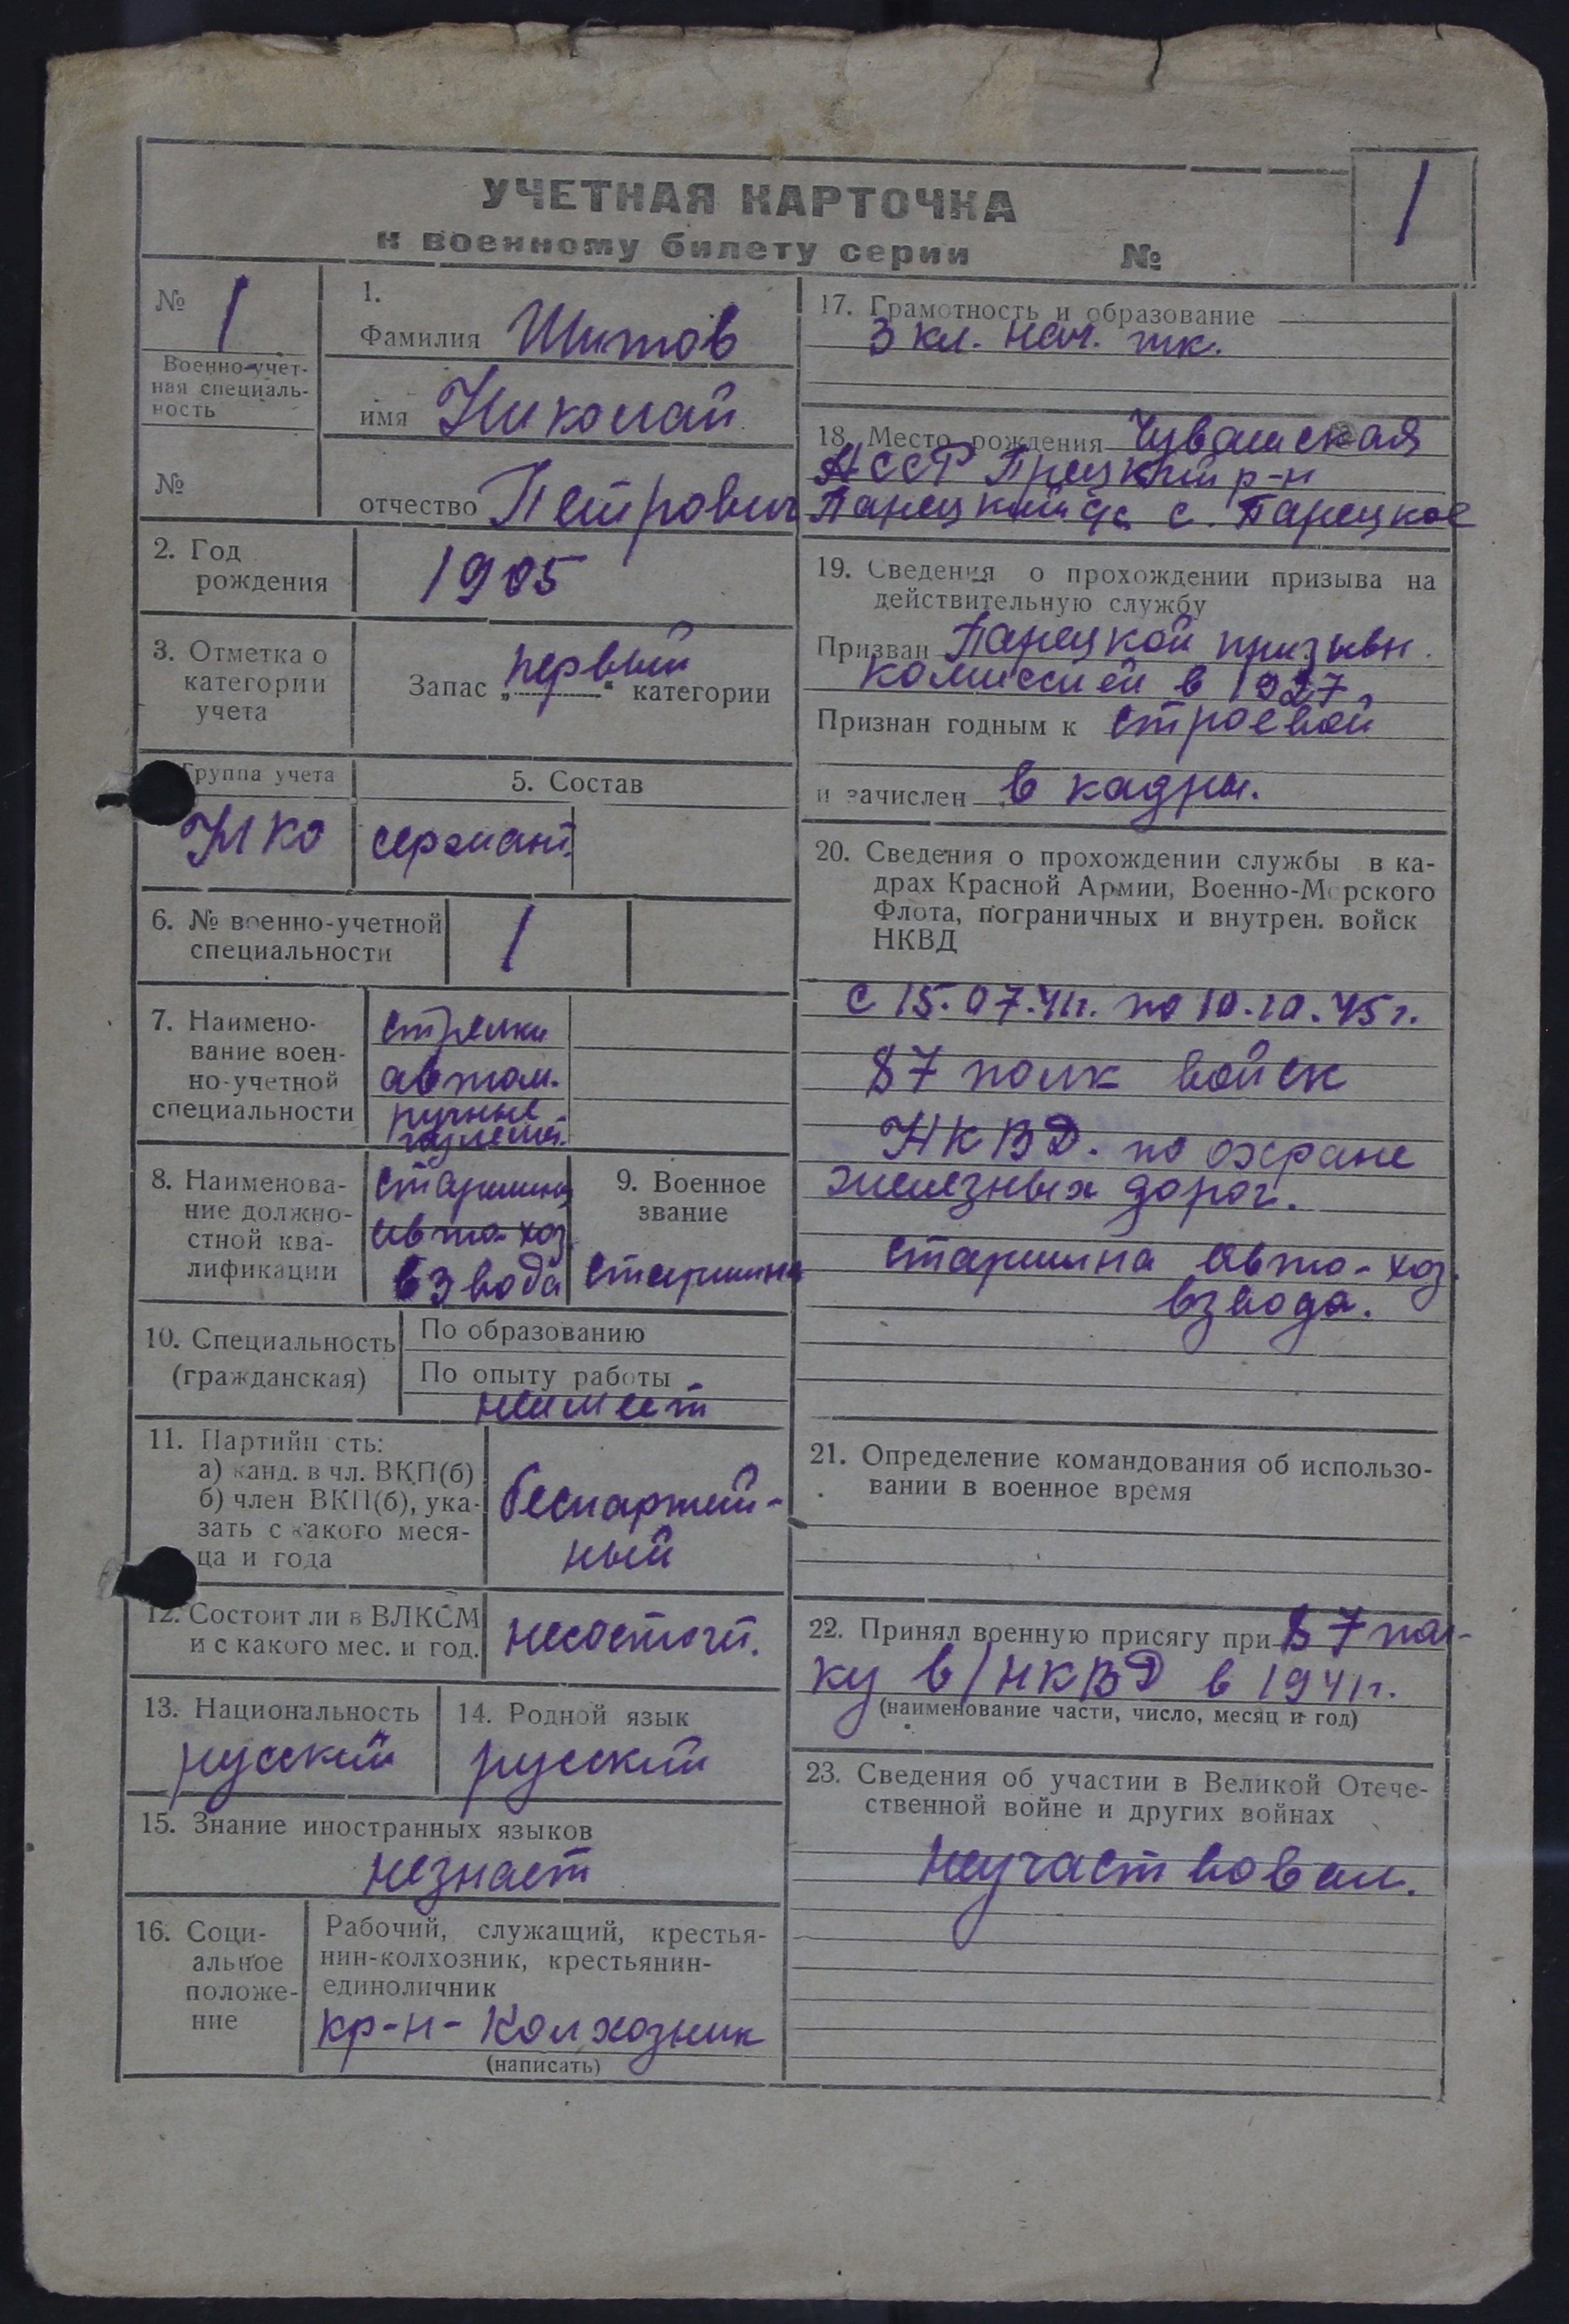 УЧЕТНАЯ КАРТОЧКА
к военному билету серии №
1
№ 1
Военно-учет-
ная специаль-
ность
№
1.
Фамилия Шитов
имя Николай
отчество Петрович
2. Год
рождения
1905
3. Отметка о
категории
учета
Запас „первый“ категории
Группа учета
НКО
5. Состав
сержант.
6. № военно-учетной
специальности
1
7. Наимено-
вание воен-
но-учетной
специальности
стрелки
автом.
ручные
пулемет.
8. Наименова-
ние должно-
стной ква-
лификации
старшина
авто-хоз
взвода
9. Военное
звание
старшина
10. Специальность
(гражданская)
По образованию
По опыту работы
неимеет
11. Партийн сть:
а) канд. в чл. ВКП(б)
б) член ВКП(б), ука-
зать с какого меся-
ца и года
беспартий-
ный
12. Состоит ли в ВЛКСМ
и с какого мес. и год.
несостоит.
13. Национальность
русский
14. Родной язык
русский
15. Знание иностранных языков
незнает
16. Соци-
альное
положе-
ние
Рабочий, служащий, крестья-
нин-колхозник, крестьянин-
единоличник
кр-н-колхозник
(написать)
17. Грамотность и образование
3 кл. нач. шк.
18. Место рождения Чувашская
АССР Прецкий р-н
Парецкий с. Парецкое
19. Сведения о прохождении призыва на
действительную службу
Призван Парецкой призывн.
комиссией в 1927г
Признан годным к строевой
и зачислен в кадры.
20. Сведения о прохождении службы в ка-
драх Красной Армии, Военно-Морского
Флота, пограничных и внутрен. войск
НКВД
с 15.07.41г. по 10.10.45г.
87 полк войск
НКВД. по охране
железных дорог.
старшина авто-хоз.
взвода.
21. Определение командования об использо-
вании в военное время
22. Принял военную присягу при 87 пол-
ку в/НКВД в 1941г.
(наименование части, число, месяц и год)
23. Сведения об участии в Великой Отече-
ственной войне и других войнах
неучаствовал.